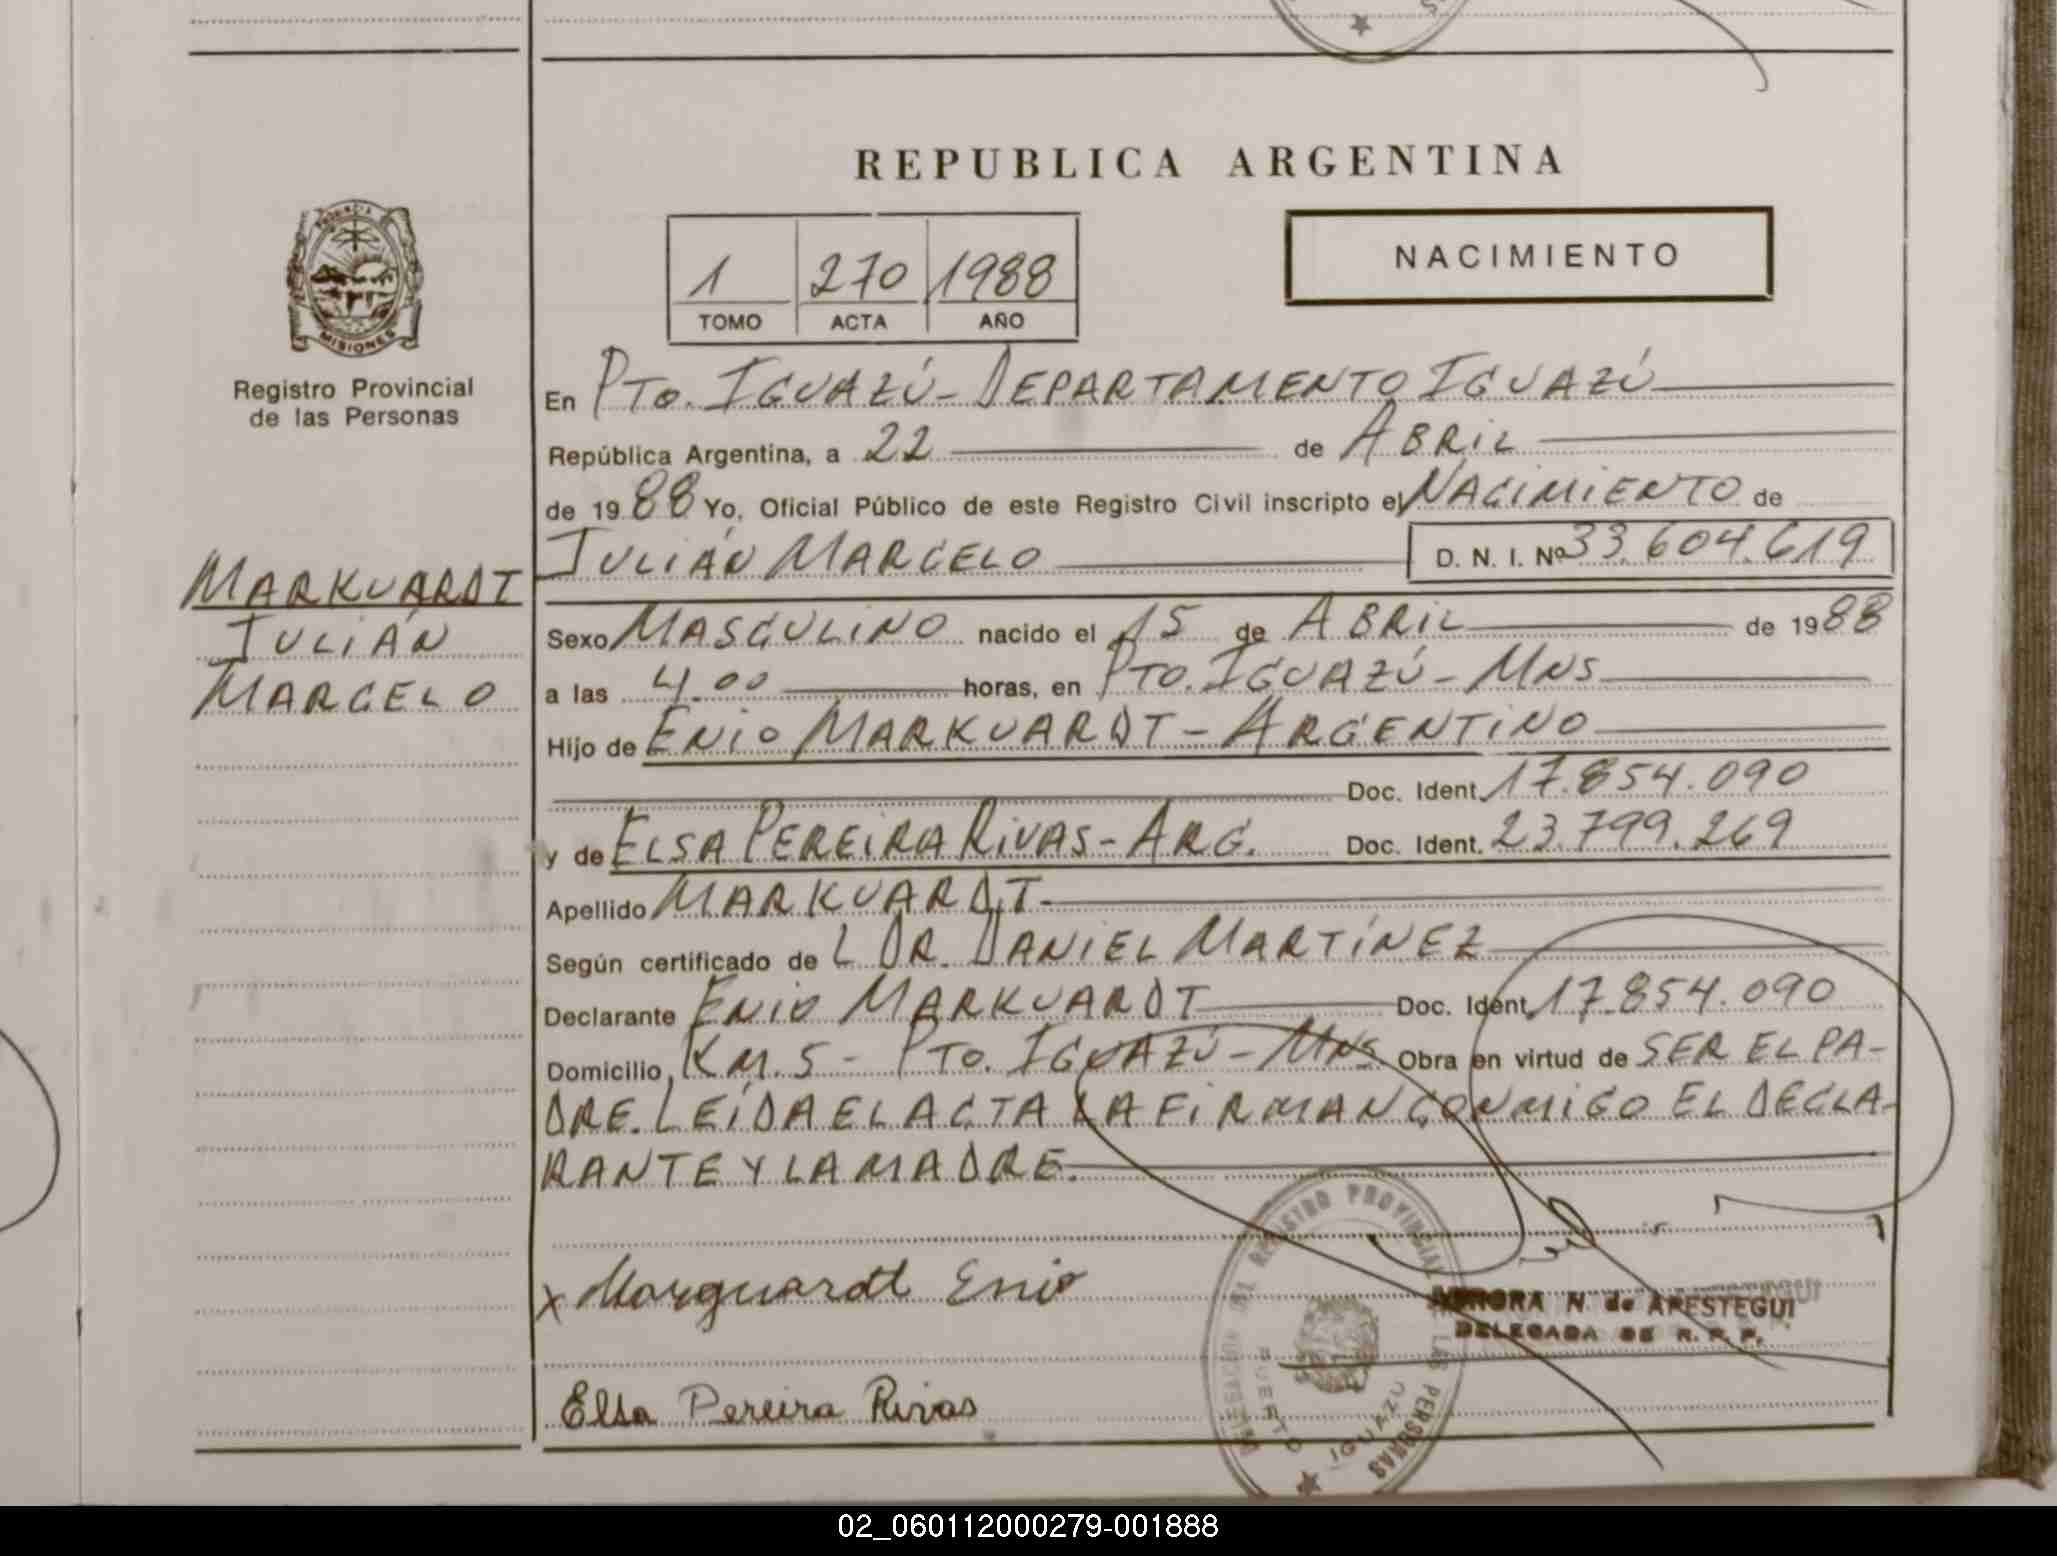 REPUBLICA ARGENTINA
PROVINCIA
MISIONES
Registro Provincial
de las Personas
1 270 1988
TOMO ACTA AÑO
NACIMIENTO
En PTO. IGUAZÚ - DEPARTAMENTO IGUAZÚ
República Argentina, a 22 de ABRIL
de 1988 Yo, Oficial Público de este Registro Civil inscripto el NACIMIENTO de
JULIÁN MARCELO D. N. I. Nº 33.604.619
MARKUARDT
JULIÁN
MARCELO
Sexo MASCULINO nacido el 15 de ABRIL de 1988
a las 4.00 horas, en PTO. IGUAZÚ - MNS
Hijo de ENIO MARKUARDT - ARGENTINO
Doc. Ident. 17.854.090
y de ELSA PEREIRA RIVAS - ARG. Doc. Ident. 23.799.269
Apellido MARKUARDT.
Según certificado de L DR. DANIEL MARTÍNEZ
Declarante ENIO MARKUARDT Doc. Ident. 17.854.090
Domicilio KM. 5 - PTO. IGUAZÚ - MNS Obra en virtud de SER EL PA-
DRE. LEÍDA EL ACTA LA FIRMAN CONMIGO EL DECLA-
RANTE Y LA MADRE.
x Marguardt Enio
AURORA N. de APESTEGUI
DELEGADA DE R. P. P.
Elsa Pereira Rivas
REGISTRO PROVINCIAL DE LAS PERSONAS
PUERTO IGUAZU
02_060112000279-001888